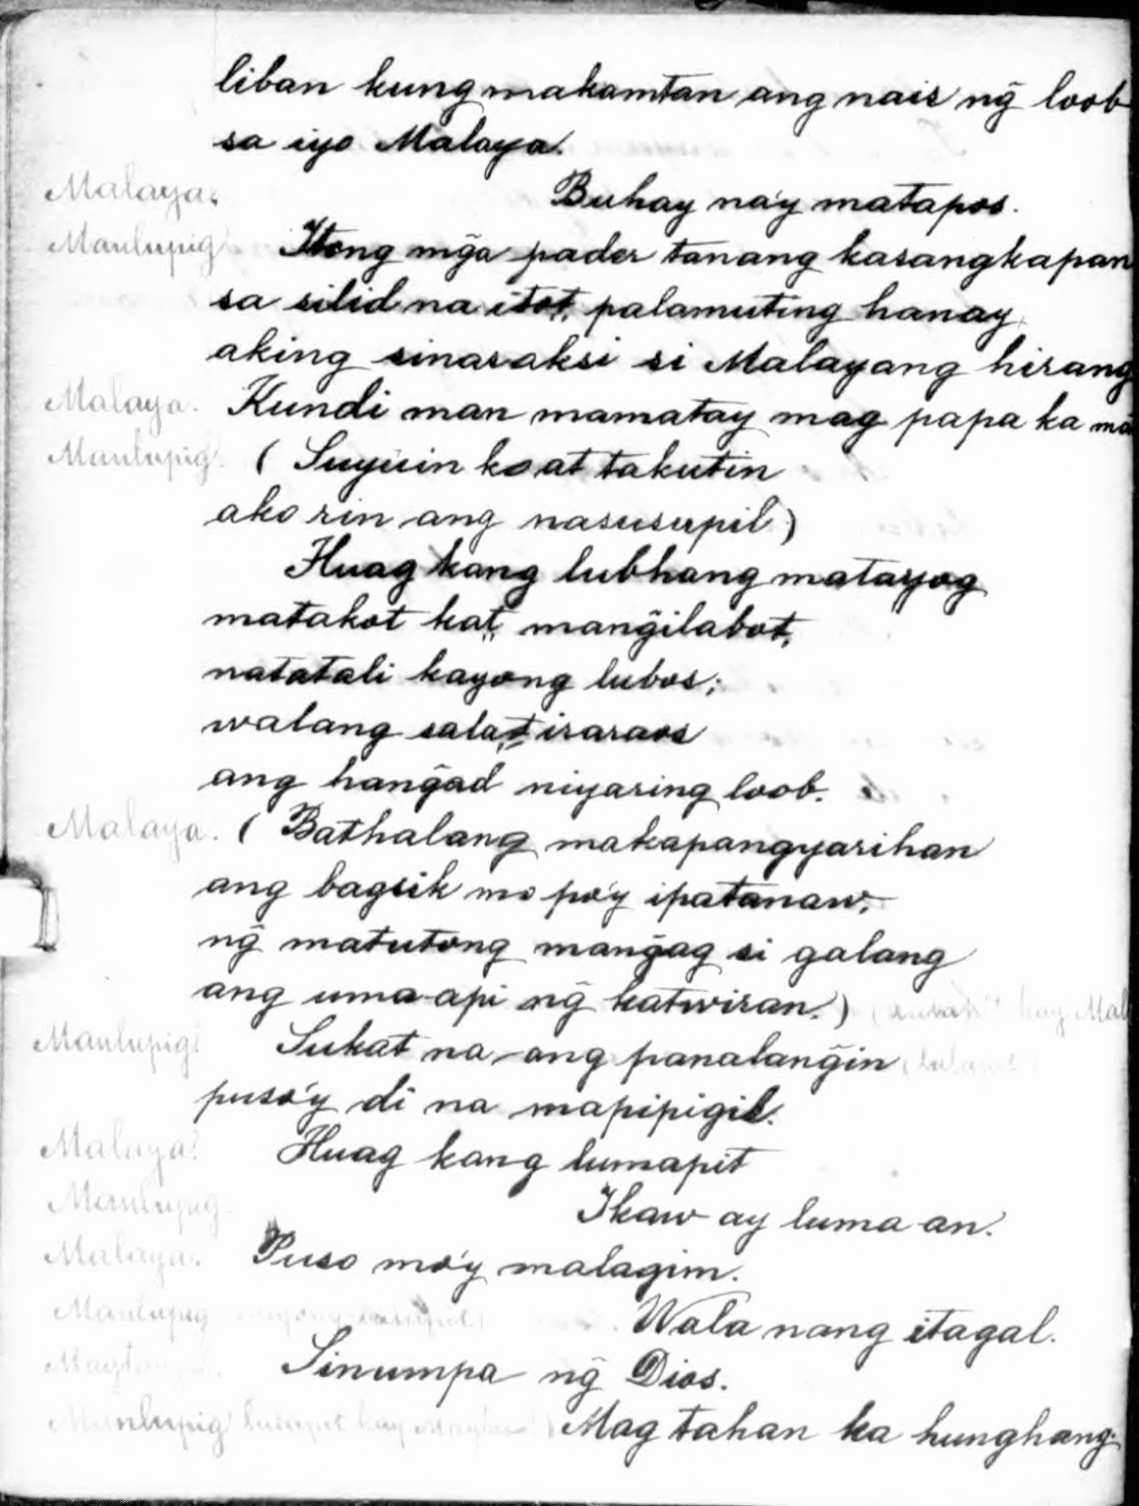 liban kung makamtan ang nais ng̃ loob
sa iyo Malaya.
Malaya. Buhay na'y matapos.
Manlupig Itong mg̃a pader tanang kasangkapan
sa silid na itot, palamuting hanay
aking sinasaksi si Malayang hirang
Malaya. Kundi man mamatay mag papa ka
Manlupig. ( Suyuin ko at takutin
ako rin ang nasusupil )
Huag kang lubhang matayog
matakot kat, mang̃ilabot,
natatali kayong lubos;
walang salat iraraos
ang hang̃ad niyaring loob.
Malaya. ( Bathalang makapangyarihan
ang bagsik mo po'y ipatanaw,
ng̃ matutong mang̃ag si galang
ang uma-api ng̃ katwiran. ) kay
Manlupig. Sukat na ang panalang̃in
puso'y di na mapipigil.
Malaya. Huag kang lumapit
Manlupig. Ikaw ay luma-an.
Malaya. Puso mo'y malagim.
Manlupig Wala nang itagal.
Sinumpa ng̃ Dios.
Manlupig kay Mag tahan ka hunghang.